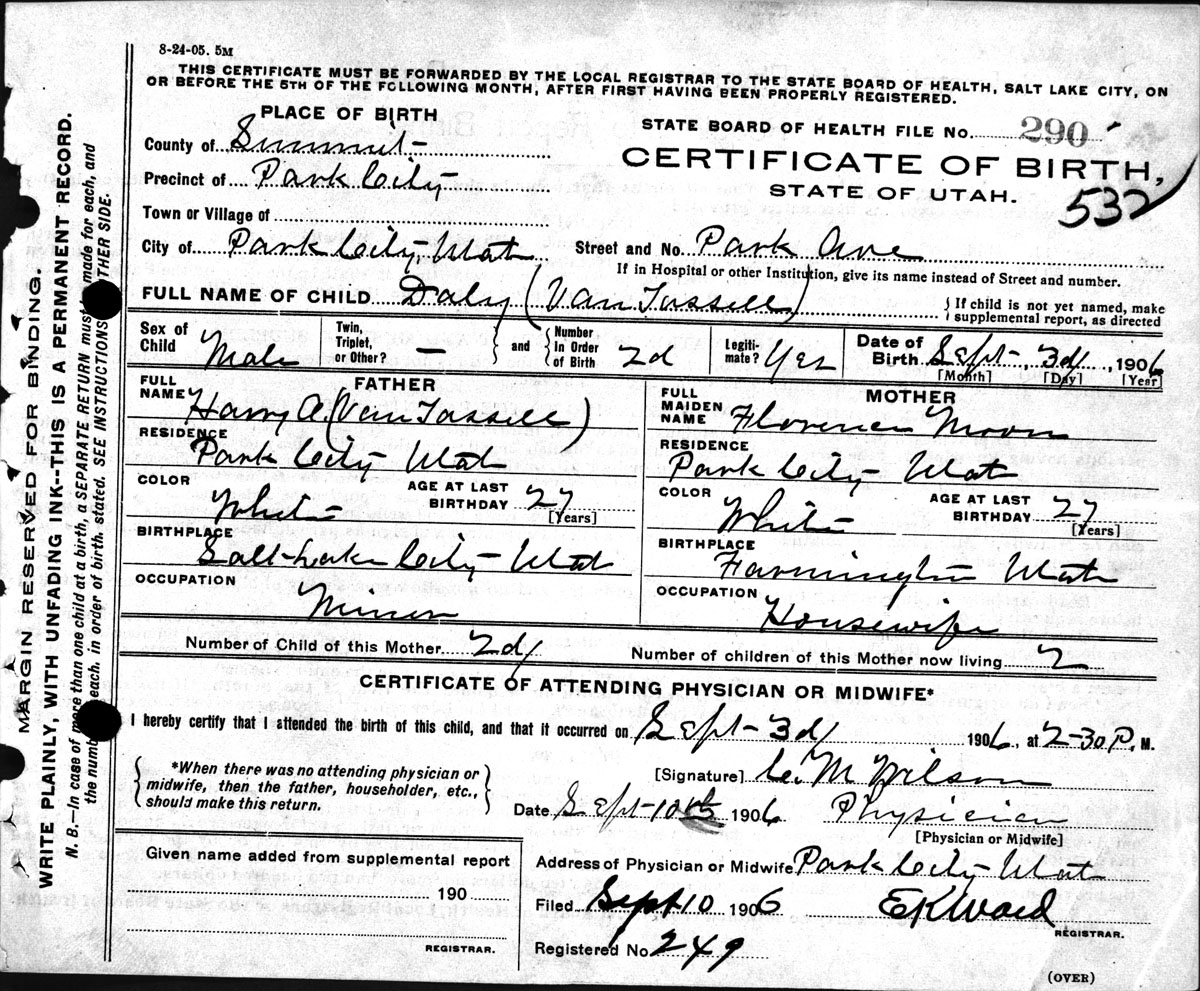 8-24-05. 5M
THIS CERTIFICATE MUST BE FORWARDED BY THE LOCAL REGISTRAR TO THE STATE BOARD OF HEALTH, SALT LAKE CITY, ON
OR BEFORE THE 5TH OF THE FOLLOWING MONTH, AFTER FIRST HAVING BEEN PROPERLY REGISTERED.
PLACE OF BIRTH
County of Summit
Precinct of Park City
Town or Village of
City of Park City, Utah
STATE BOARD OF HEALTH FILE No. 290
CERTIFICATE OF BIRTH,
STATE OF UTAH.
532
Street and No. Park Ave
If in Hospital or other Institution, give its name instead of Street and number.
FULL NAME OF CHILD Daly (Van Tassell)
If child is not yet named, make
supplemental report, as directed
Sex of Child Male
Twin, Triplet, or Other? —
and
Number In Order of Birth 2d
Legiti- mate? Yes
Date of Birth Sept 3d, 1906
[Month] [Day] [Year]
FATHER
FULL NAME Harry A. (Van Tassell)
RESIDENCE Park City Utah
COLOR White
AGE AT LAST BIRTHDAY 27
[Years]
BIRTHPLACE Salt Lake City Utah
OCCUPATION Miner
MOTHER
FULL MAIDEN NAME Florence Moon
RESIDENCE Park City Utah
COLOR White
AGE AT LAST BIRTHDAY 27
[Years]
BIRTHPLACE Farmington Utah
OCCUPATION Housewife
Number of Child of this Mother 2d
Number of children of this Mother now living 2
CERTIFICATE OF ATTENDING PHYSICIAN OR MIDWIFE*
I hereby certify that I attended the birth of this child, and that it occurred on Sept 3d 1906, at 2-30 P. M.
*When there was no attending physician or
midwife, then the father, householder, etc.,
should make this return.
[Signature] C. M. Wilson
Date Sept 10th 1906 Physician
[Physician or Midwife]
Given name added from supplemental report
190
REGISTRAR.
Address of Physician or Midwife Park City Utah
Filed Sept 10 1906 EKWard
REGISTRAR.
Registered No. 249
(OVER)
MARGIN RESERVED FOR BINDING.
WRITE PLAINLY, WITH UNFADING INK--THIS IS A PERMANENT RECORD.
N. B.—In case of more than one child at a birth, a SEPARATE RETURN must made for each, and
the numb each, in order of birth, stated. SEE INSTRUCTIONS THER SIDE.